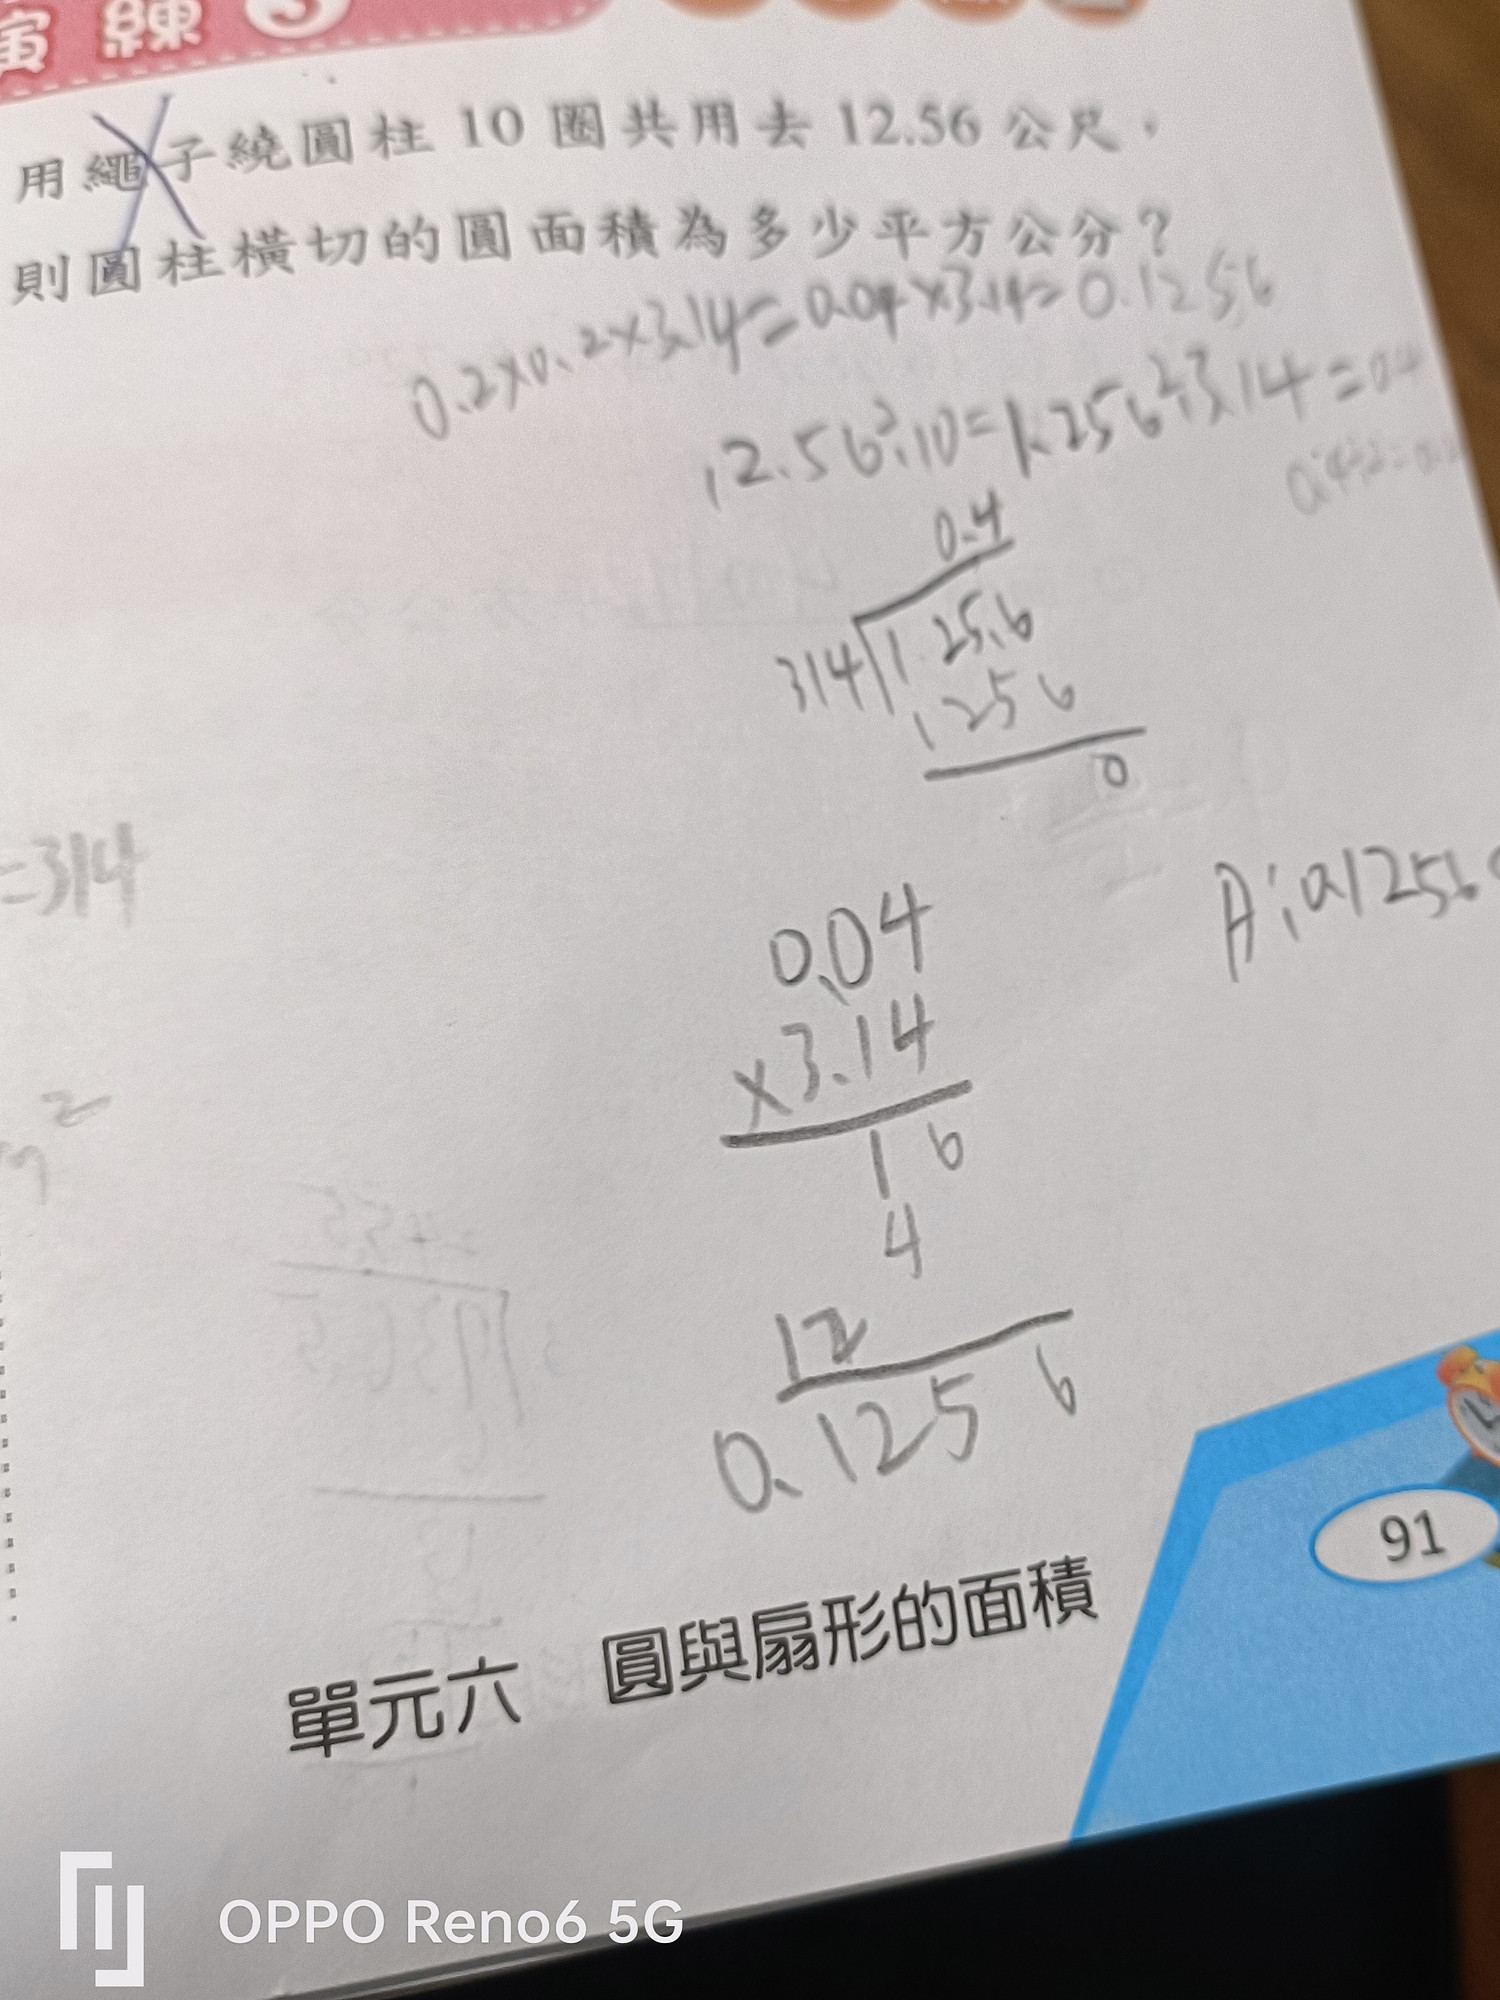 演練3
用繩子繞圓柱 10 圈共用去 12.56 公尺，
則圓柱橫切的圓面積為多少平方公分？
0.2×0.2×3.14=0.04×3.14=0.1256
12.56÷10=1.256÷3.14=0.4
0.4÷2=0.2
0.4
314 1.25.6
1256
0
=314
A:0.1256
0.04
×3.14
16
4
12
0.1256
2
91
單元六 圓與扇形的面積
OPPO Reno6 5G